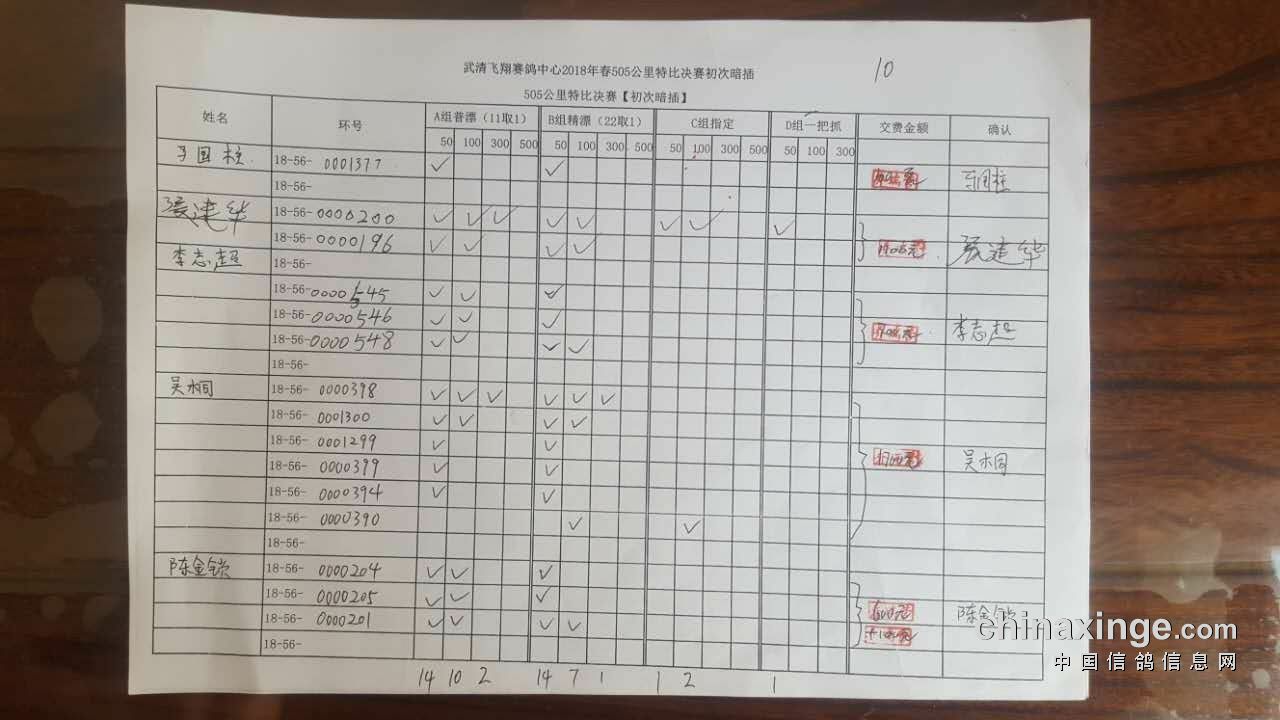 武清飞翔赛鸽中心2018年春505公里特比决赛初次暗插 10
505公里特比决赛【初次暗插】
姓名 环号 A组普漂（11取1） B组精漂（22取1） C组指定 D组一把抓 交费金额 确认
50 100 300 500 50 100 300 500 50 100 300 500 50 100 300
国柱 18-56- 0001377 ✓ ✓ 国柱
18-56-
张建华 18-56-0000200 ✓ ✓ ✓ ✓ ✓ ✓ ✓ ✓
18-56-0000196 ✓ ✓ ✓ ✓ 张建华
李志超 18-56-
18-56-0000545 ✓ ✓ ✓
18-56-0000546 ✓ ✓ ✓ 李志超
18-56-0000548 ✓ ✓ ✓ ✓
18-56-
吴 18-56- 0000398 ✓ ✓ ✓ ✓ ✓ ✓
18-56- 0001300 ✓ ✓ ✓ ✓
18-56- 0001299 ✓ ✓
18-56- 0000399 ✓ ✓ 吴
18-56- 0000394 ✓ ✓
18-56- 0000390 ✓ ✓
18-56-
陈金锁 18-56- 0000204 ✓ ✓ ✓
18-56- 0000205 ✓ ✓ ✓
18-56- 0000201 ✓ ✓ ✓ ✓ 陈金锁
18-56-
14 10 2 14 7 1 1 2 1
chinaxinge.com
中国信鸽信息网